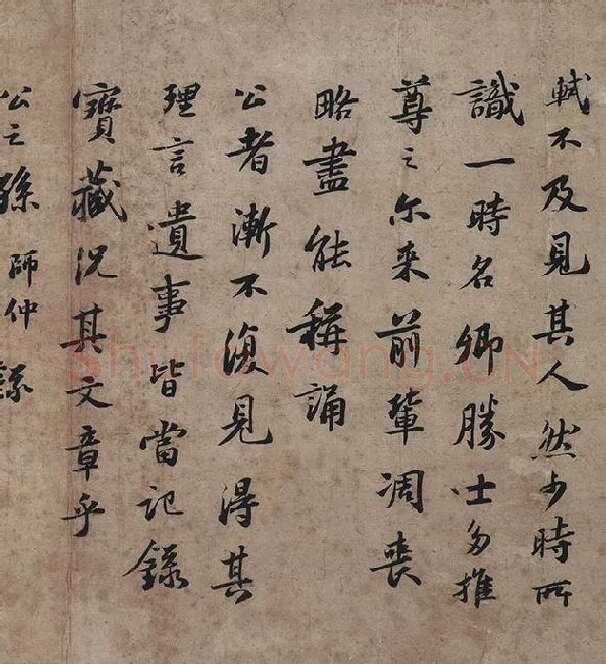 軾不及見其人然少時所
識一時名卿勝士多推
尊之尓来前輩凋喪
略盡能稱誦
公者漸不復見得其
理言遺事皆當記錄
寶藏況其文章乎
公之孫師仲錄
shufawang.CN